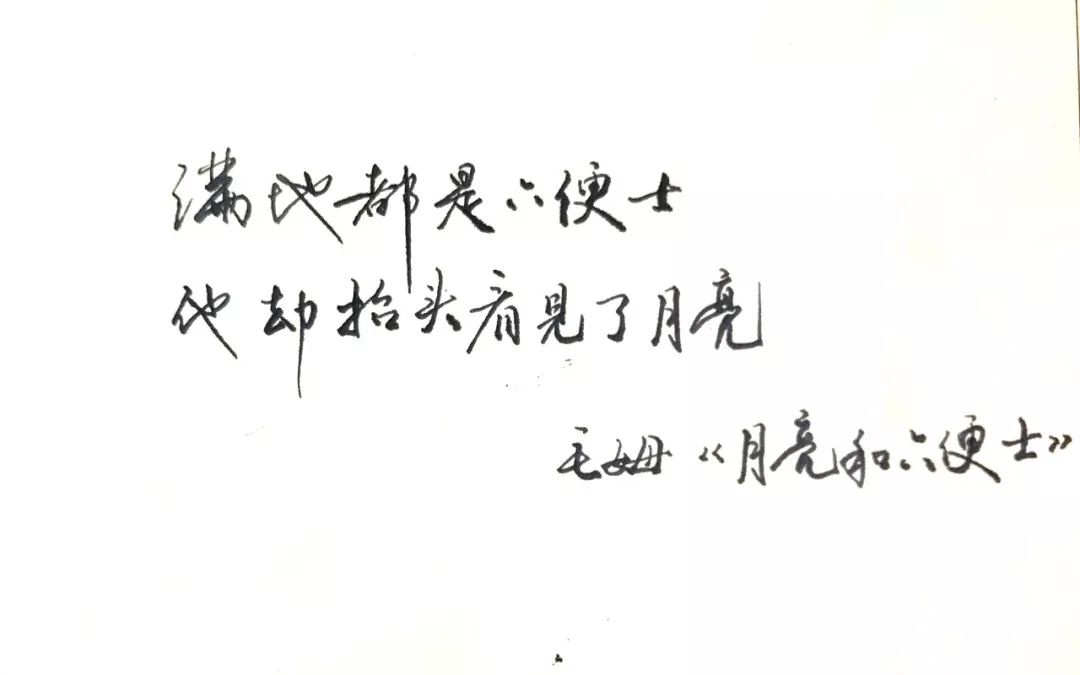 满地都是六便士
他却抬头看见了月亮
毛姆《月亮和六便士》